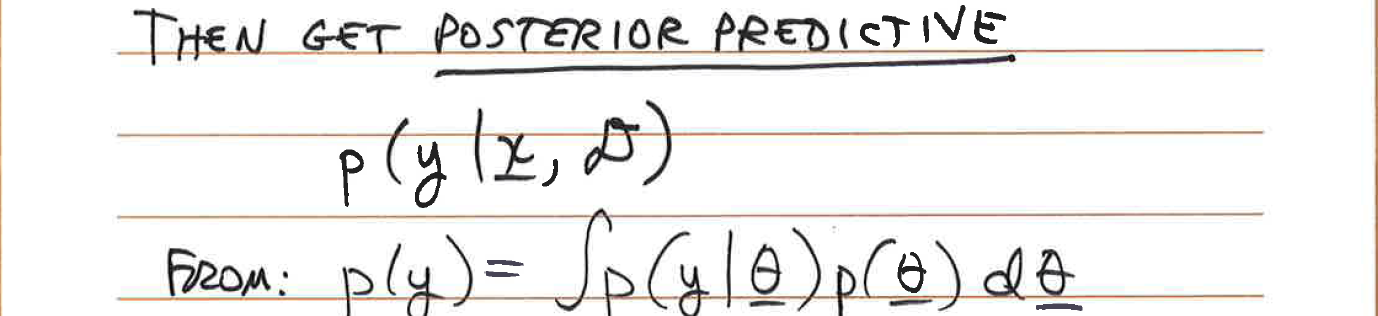 THEN GET POSTERIOR PREDICTIVE
p(y|x, D)
FROM: p(y) = ∫p(y|θ)p(θ) dθ